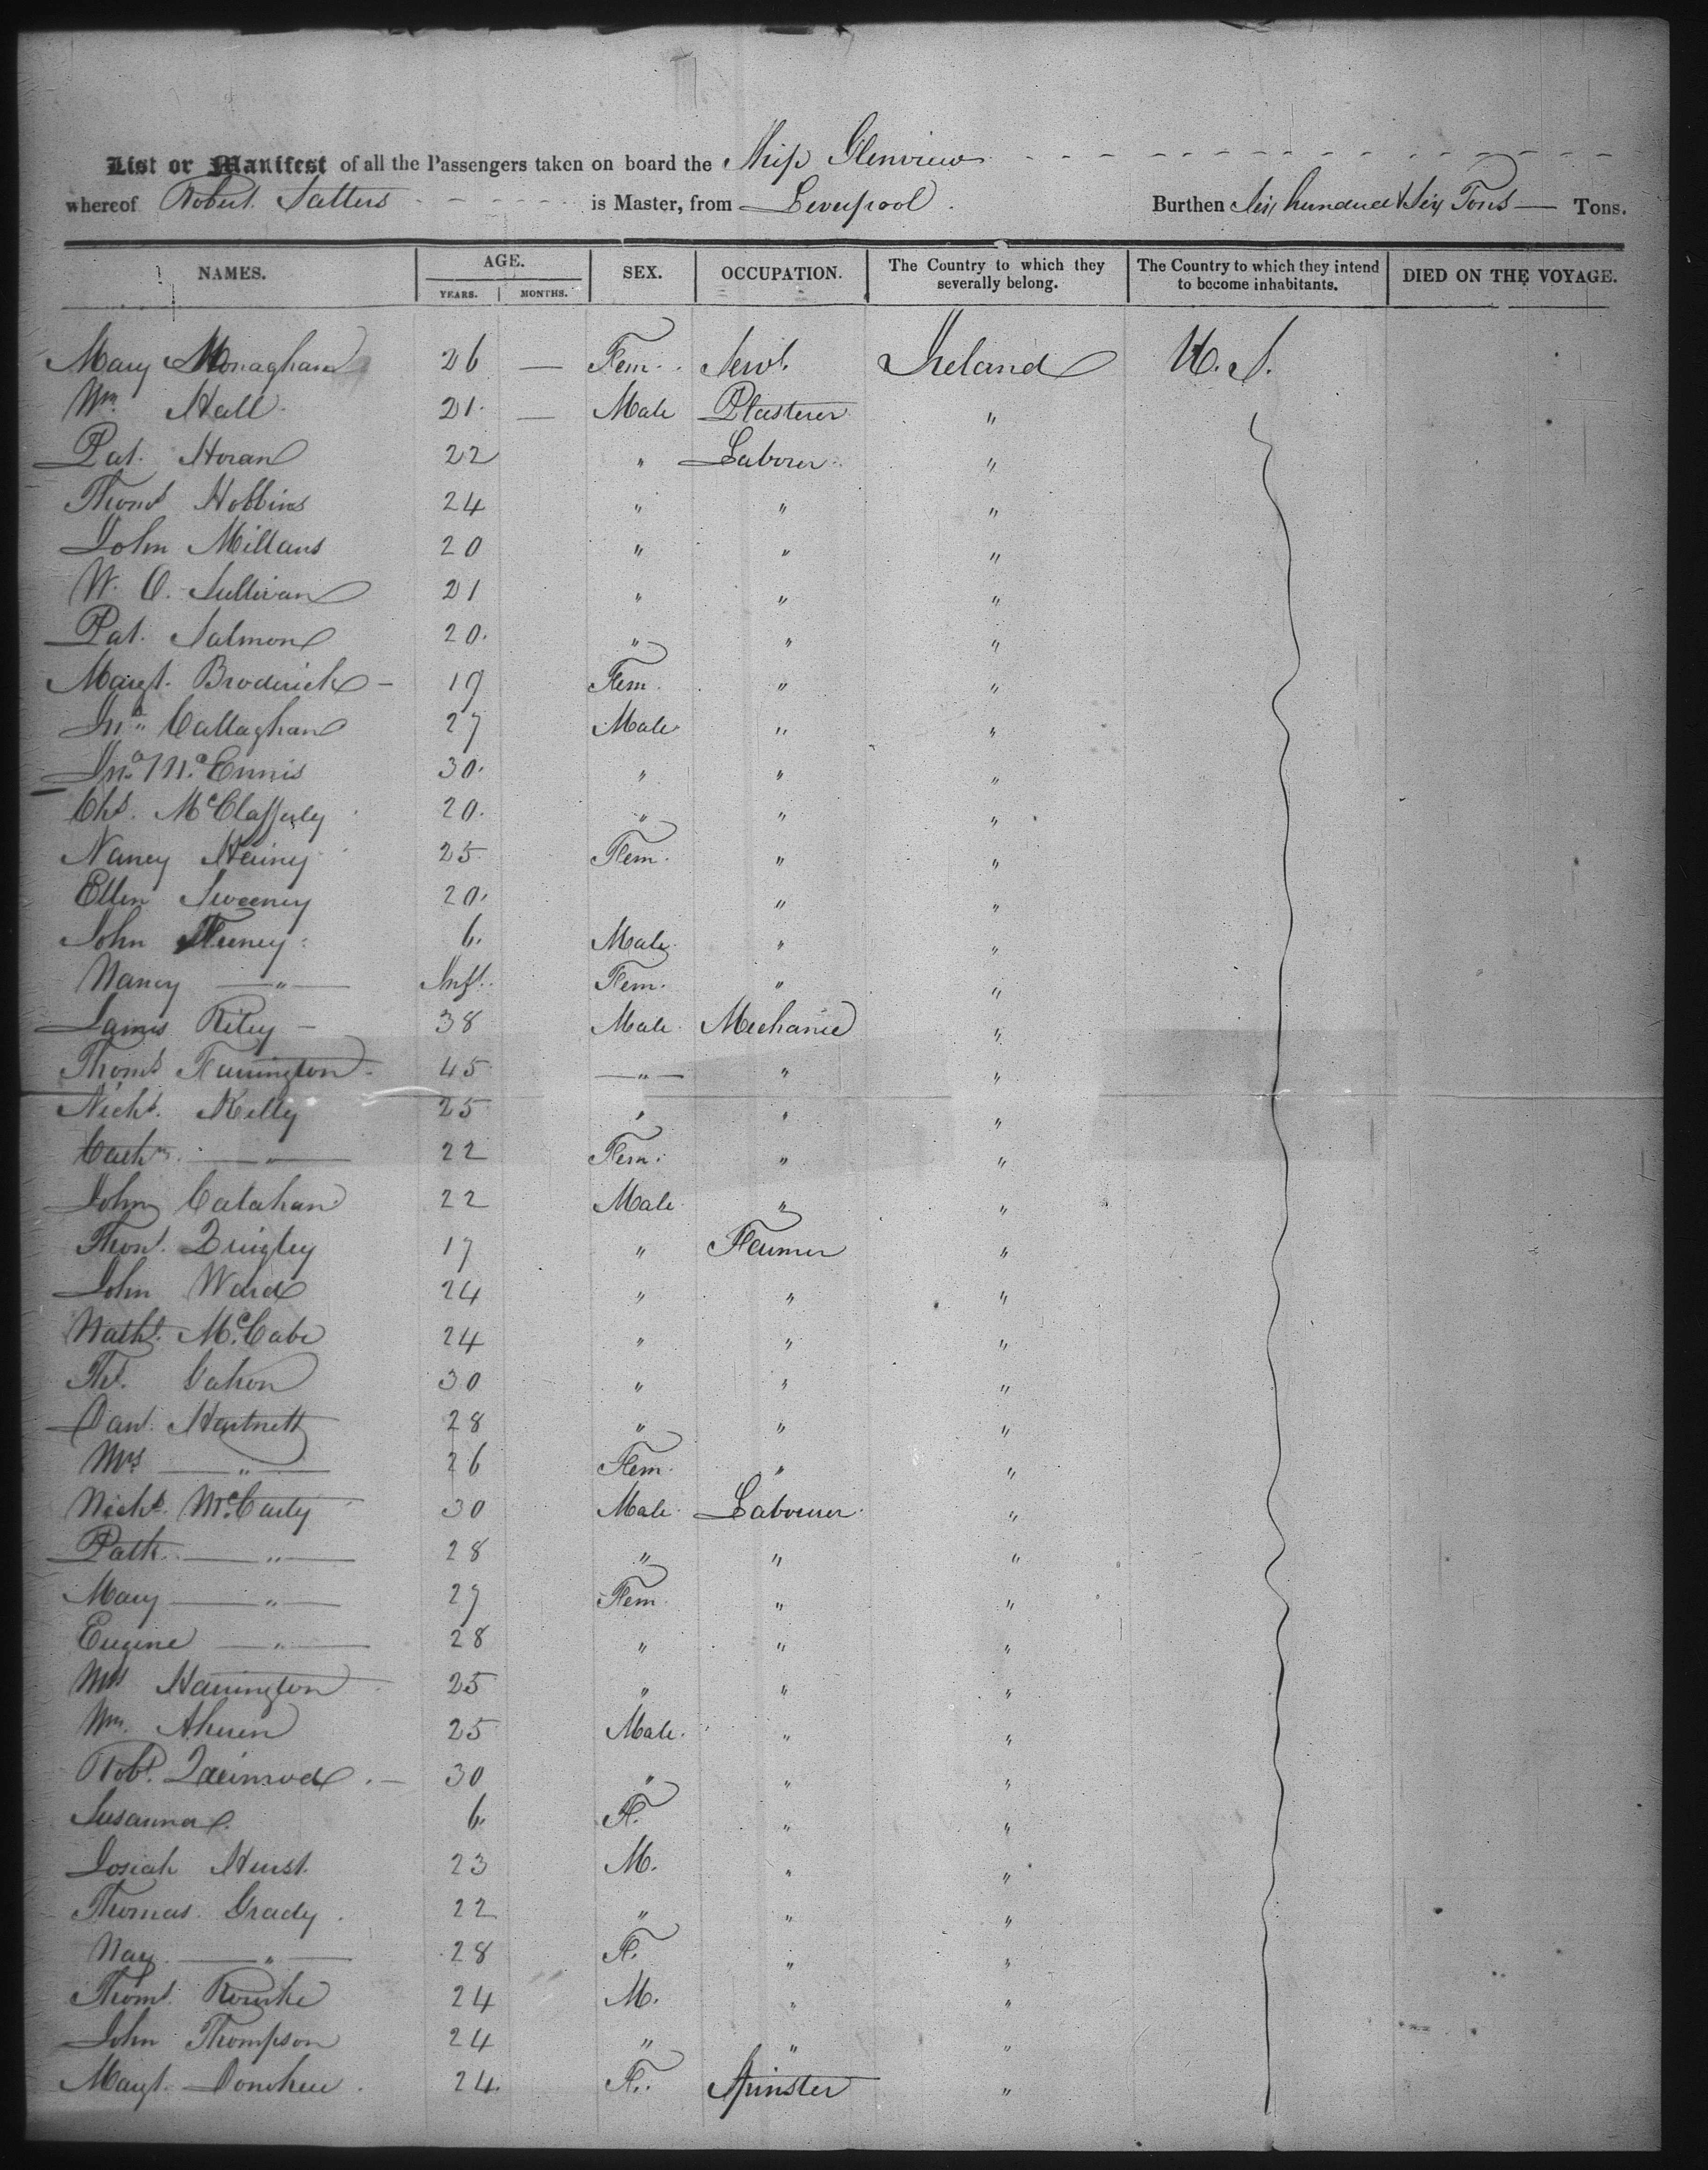 List or Manifest of all the Passengers taken on board the Ship Glenview
whereof Robert Satters is Master, from Liverpool. Burthen Six hundred & Six Tons — Tons.
NAMES. AGE. SEX. OCCUPATION. The Country to which they severally belong. The Country to which they intend to become inhabitants. DIED ON THE VOYAGE.
YEARS. MONTHS.
Mary Monaghan 26 — Fem. Servt. Ireland U. S.
Wm. Hall 21. — Male Plasterer "
Pat. Horan 22 " Laborer "
Thoms Hobbins 24 " " "
John Millans 20 " " "
W. O. Sullivan 21 " " "
Pat. Salmon 20. " " "
Margt. Broderick — 19 Fem. " "
Jno. Callaghan 27 Male " "
Jno. McEnnis 30. " " "
Chs. McClafferty 20. " " "
Nancy Heiney 25 Fem. " "
Ellen Sweeney 20. " "
John Feeney 6. Male " "
Nancy — " — Inft. Fem. " "
James Riley — 38 Male Mechanic "
Thoms Farrington 45 — " — " "
Nichs. Kelly 25 " " "
Cath — " — 22 Fem. " "
John Calahan 22 Male " "
Thos. Quigley 17 " Farmer "
John Ward 24 " " "
Nathl. McCabe 24 " " "
Ths. Gahon 30 " " "
Danl. Hartnett 28 " " "
Mrs — " — 26 Fem. " "
Nichs. McCarty 30 Male Labourer "
Patk. — " — 28 " " "
Mary — " — 27 Fem. " "
Eugene — " — 28 " " "
Mrs Harrington 25 " " "
Wm. Ahern 25 Male. " "
Robt. — 30 " " "
Susanna. 6. F. " "
Josiah Hurst. 23 M. " "
Thomas Grady 22 " " "
May — " — 28 F. " "
Thoms. Rourke 24 M. " "
John Thompson 24 " " "
Margt. Donohue 24. F. Spinster "